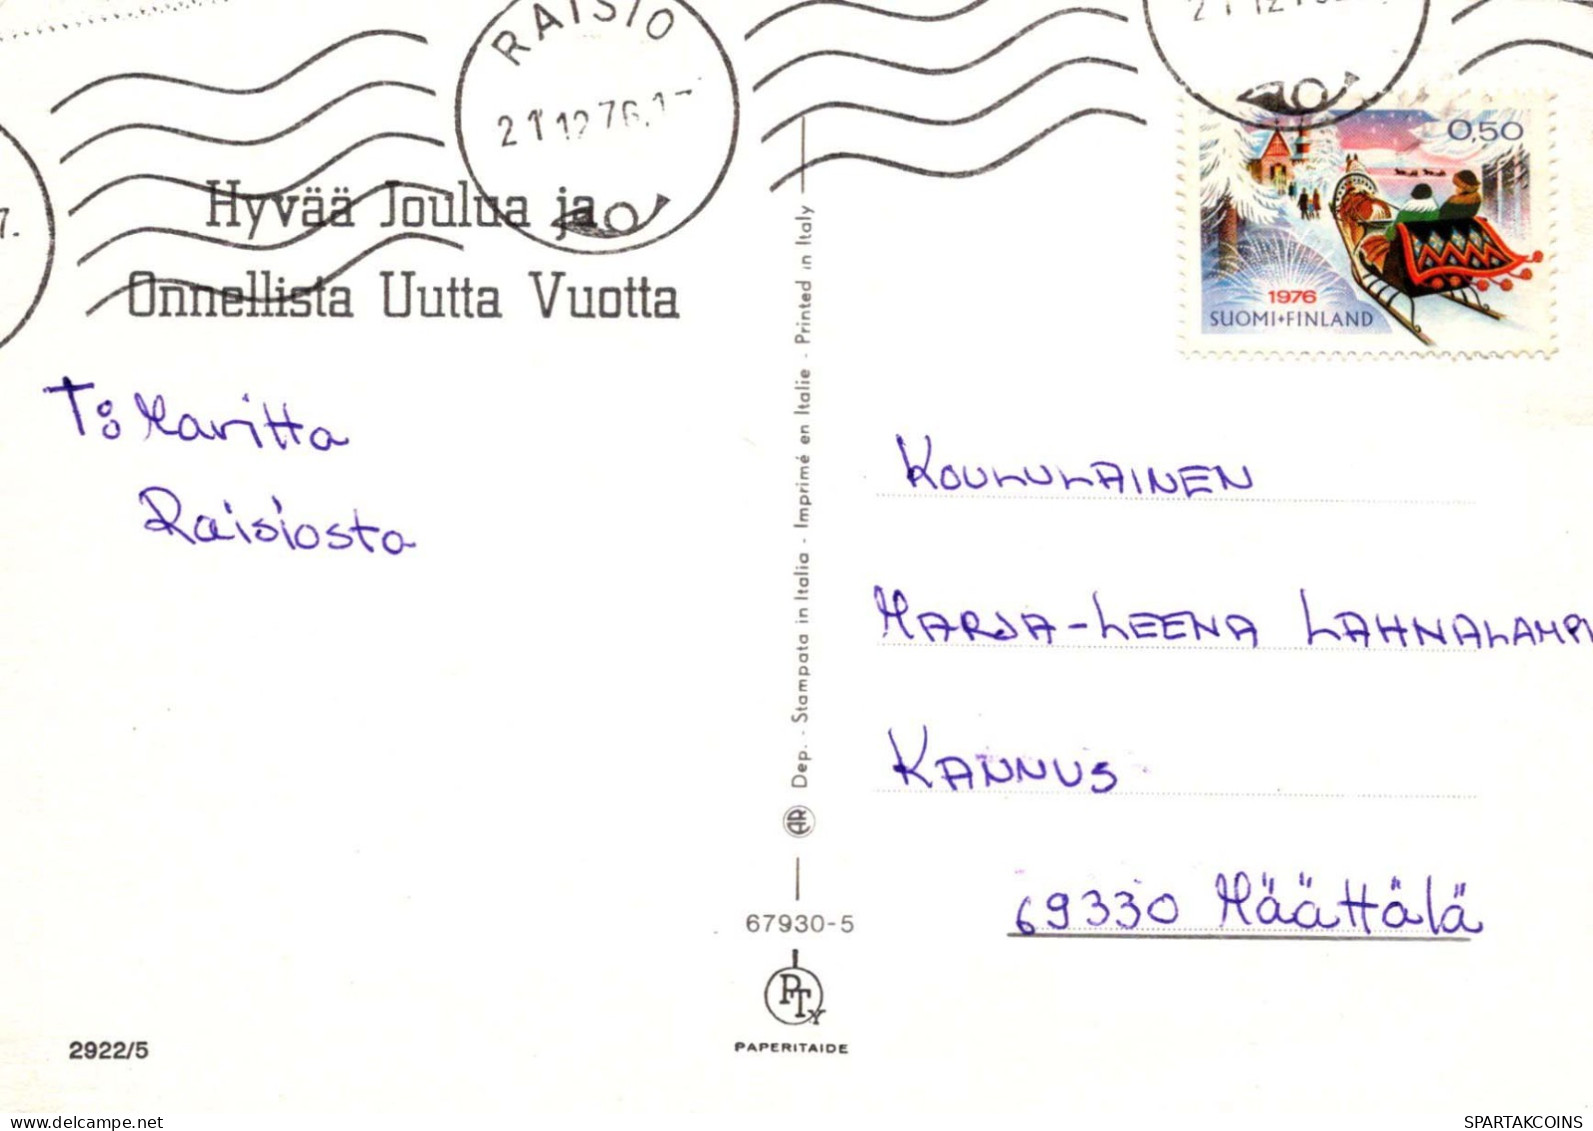 RAISIO
21 12 76.17
Hyvää Joulua ja
Onnellista Uutta Vuotta
T: Maritta
Raisiosta
Dep. - Stampata in Italia - Imprimé en Italie - Printed in Italy
AR
67930-5
PTY
PAPERITAIDE
2922/5
0,50
1976
SUOMI+FINLAND
KOULULAINEN
MARJA-LEENA LAHNALAMPI
KANNUS
69330 Määttälä
SPARTAKCOINS